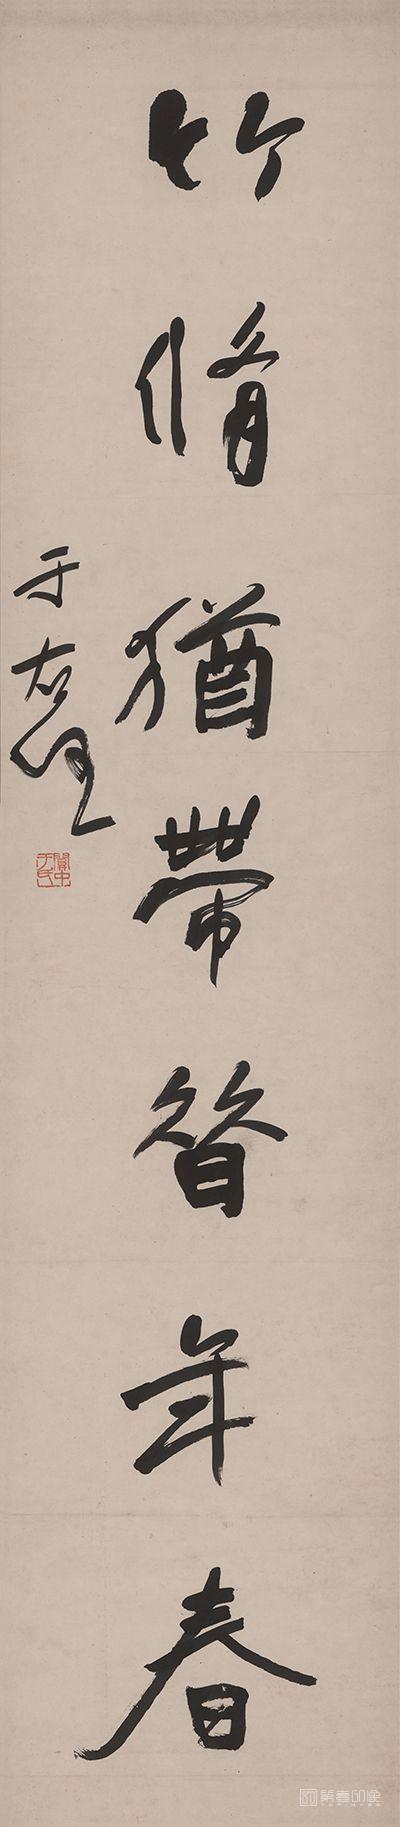 竹脩猶帶昔年春
于右任
關中于氏